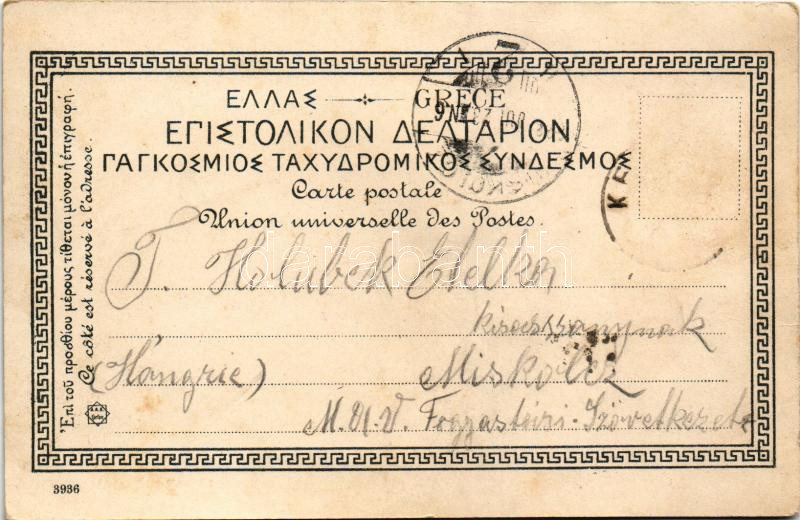 ΕΛΛΑΣ GRECE
ΕΠΙΣΤΟΛΙΚΟΝ ΔΕΛΤΑΡΙΟΝ
ΠΑΓΚΟΣΜΙΟΣ ΤΑΧΥΔΡΟΜΙΚΟΣ ΣΥΝΔΕΣΜΟΣ
Carte postale
Union universelle des Postes.
Ἐπὶ τοῦ προσθίου μέρους τίθεται μόνον ἡ ἐπιγραφή.
Ce côté est réservé à l'adresse.
T. Holubek Etelka
kisasszonynak
(Hongrie) Miskolcz
M.Á.V. Fogyasztási-Szövetkezete
3936
darabanth